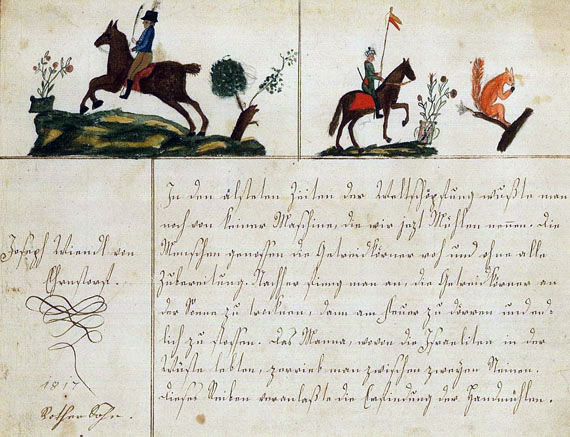 In den älsteten Zeiten der Weltschöpfung wußte man
noch von keiner Maschine, die wir jezt Mühlen nennen. Die
Menschen genossen die Getreidkörner roh und ohne alle
Zubereitung. Nachher fieng man an, die Getreidkörner an
der Sonne zu trocknen, dann am Feuer zu dörren und end-
lich zu stossen. Das Manna, wovon die Israeliten in der
Wüste lebten, zerrieb man zwischen zweyen Steinen.
Dieses Reiben veranlaßte die Erfindung der Handmühlen.
Joseph Wiendl von
Ehrnstorf.
1817